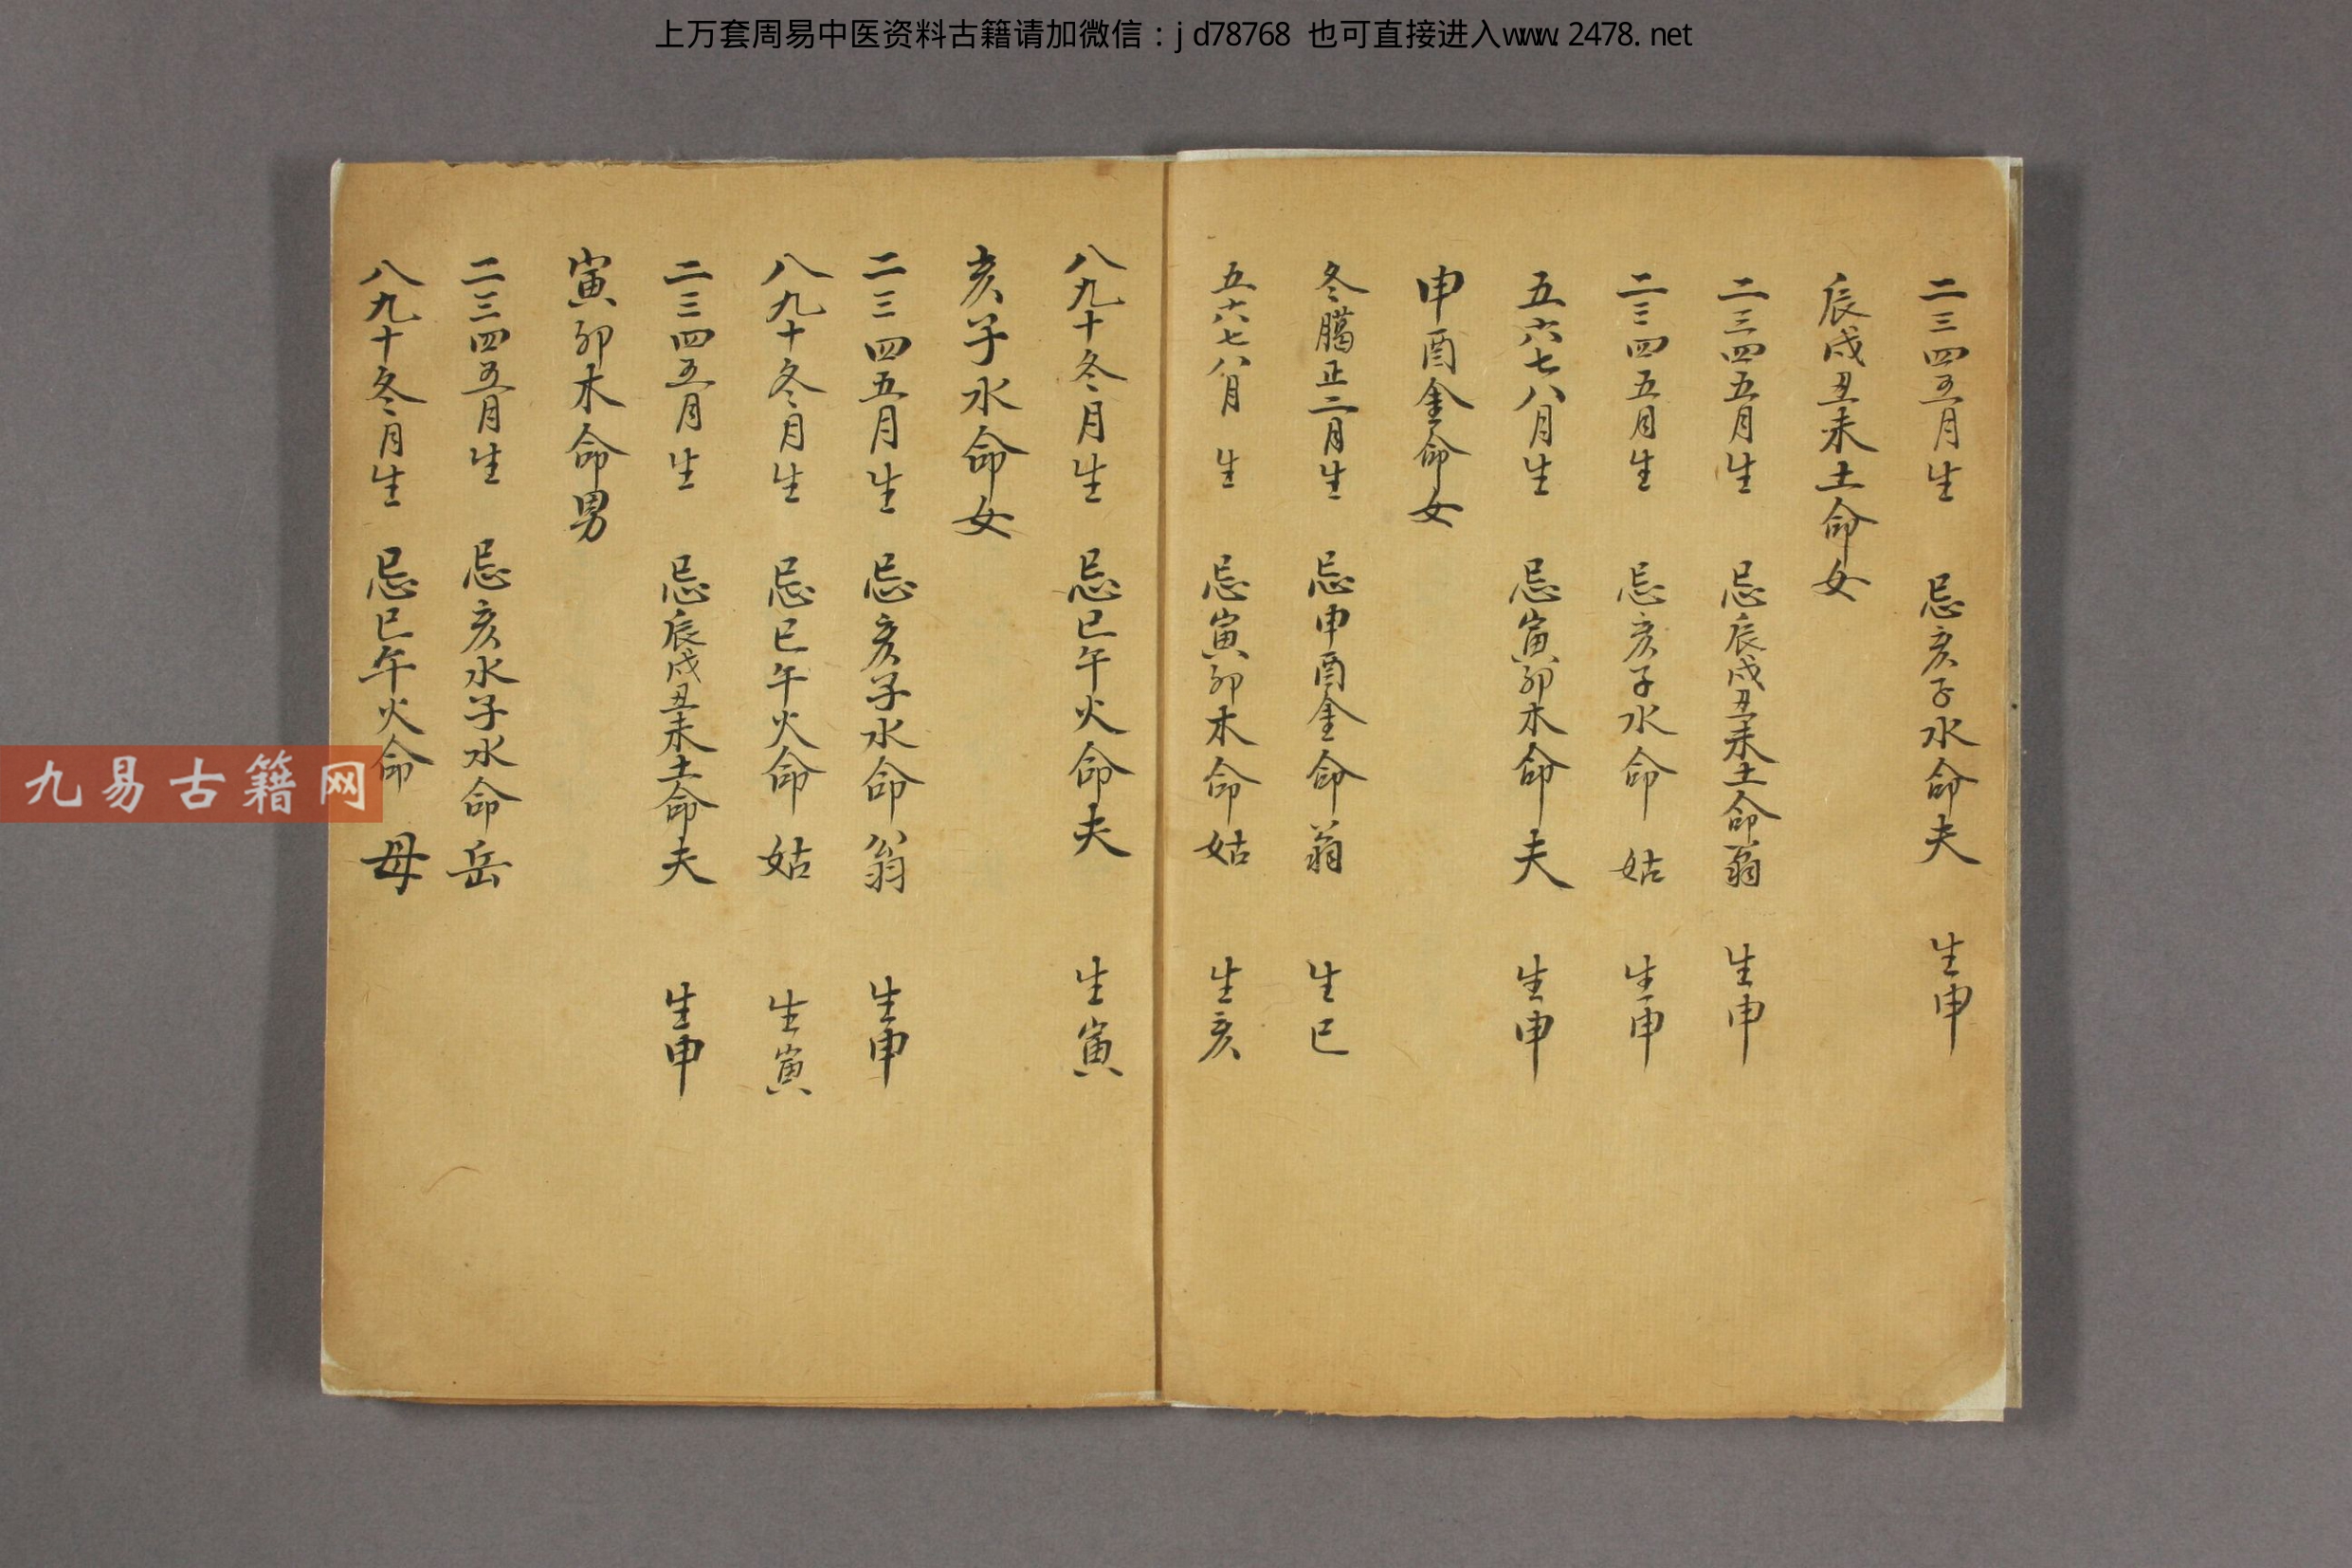 上万套周易中医资料古籍请加微信：jd78768 也可直接进入www.2478.net
二三四五月生 忌亥子水命夫 生申
辰戌丑未土命女
二三四五月生 忌辰戌丑未土命翁 生申
二三四五月生 忌亥子水命姑 生申
五六七八月生 忌寅卯木命夫 生申
申酉金命女
冬臈正二月生 忌申酉金命翁 生巳
五六七八月生 忌寅卯木命姑 生亥
八九十冬月生 忌巳午火命夫 生寅
亥子水命女
二三四五月生 忌亥子水命翁 生申
八九十冬月生 忌巳午火命姑 生寅
二三四五月生 忌辰戌丑未土命夫 生申
寅卯木命男
二三四五月生 忌亥水子水命岳
八九十冬月生 忌巳午火命母
九易古籍网